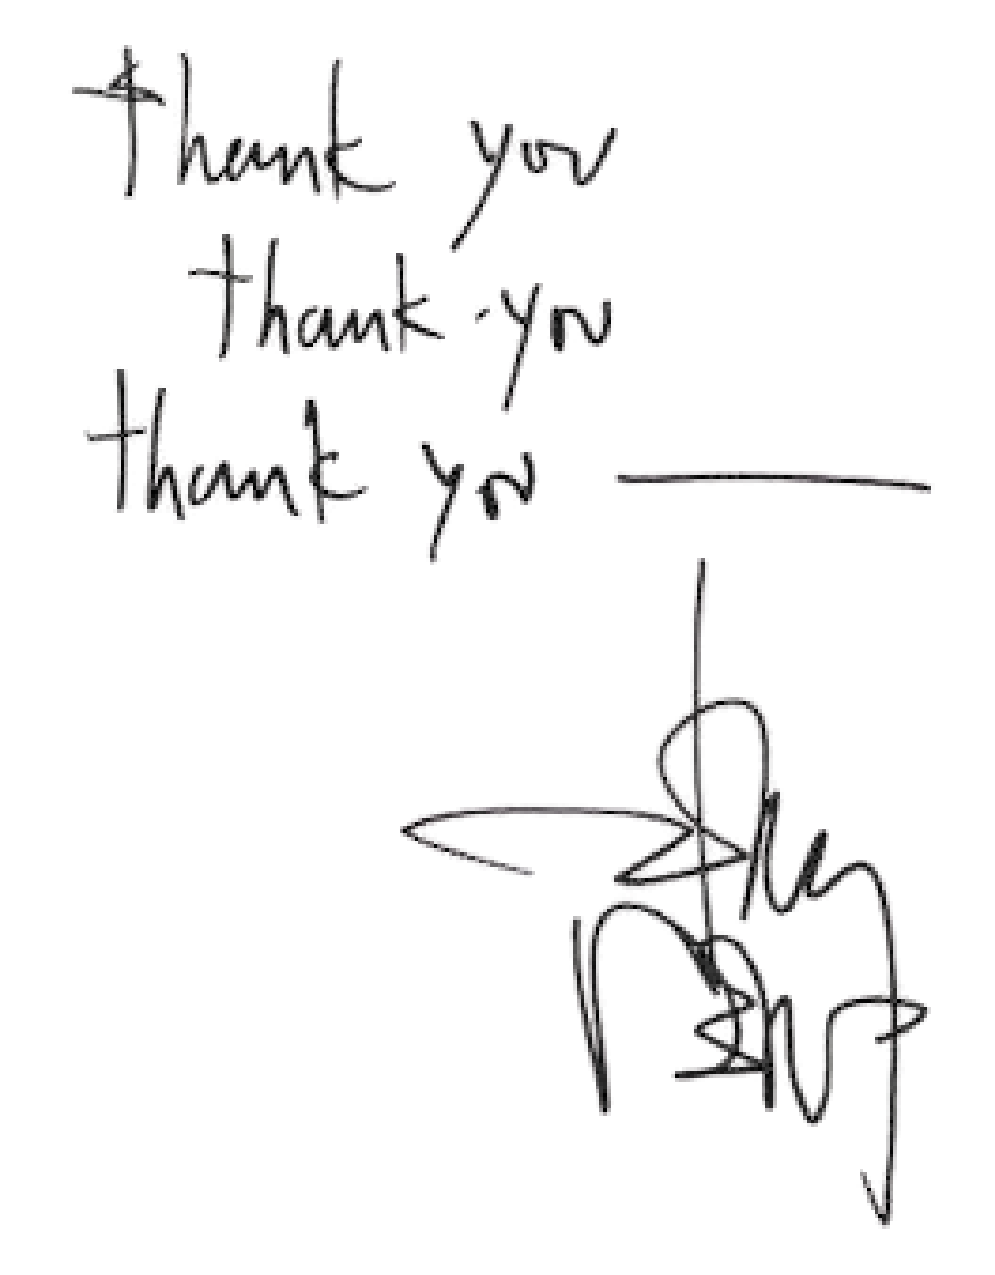 thank you
thank you
thank you